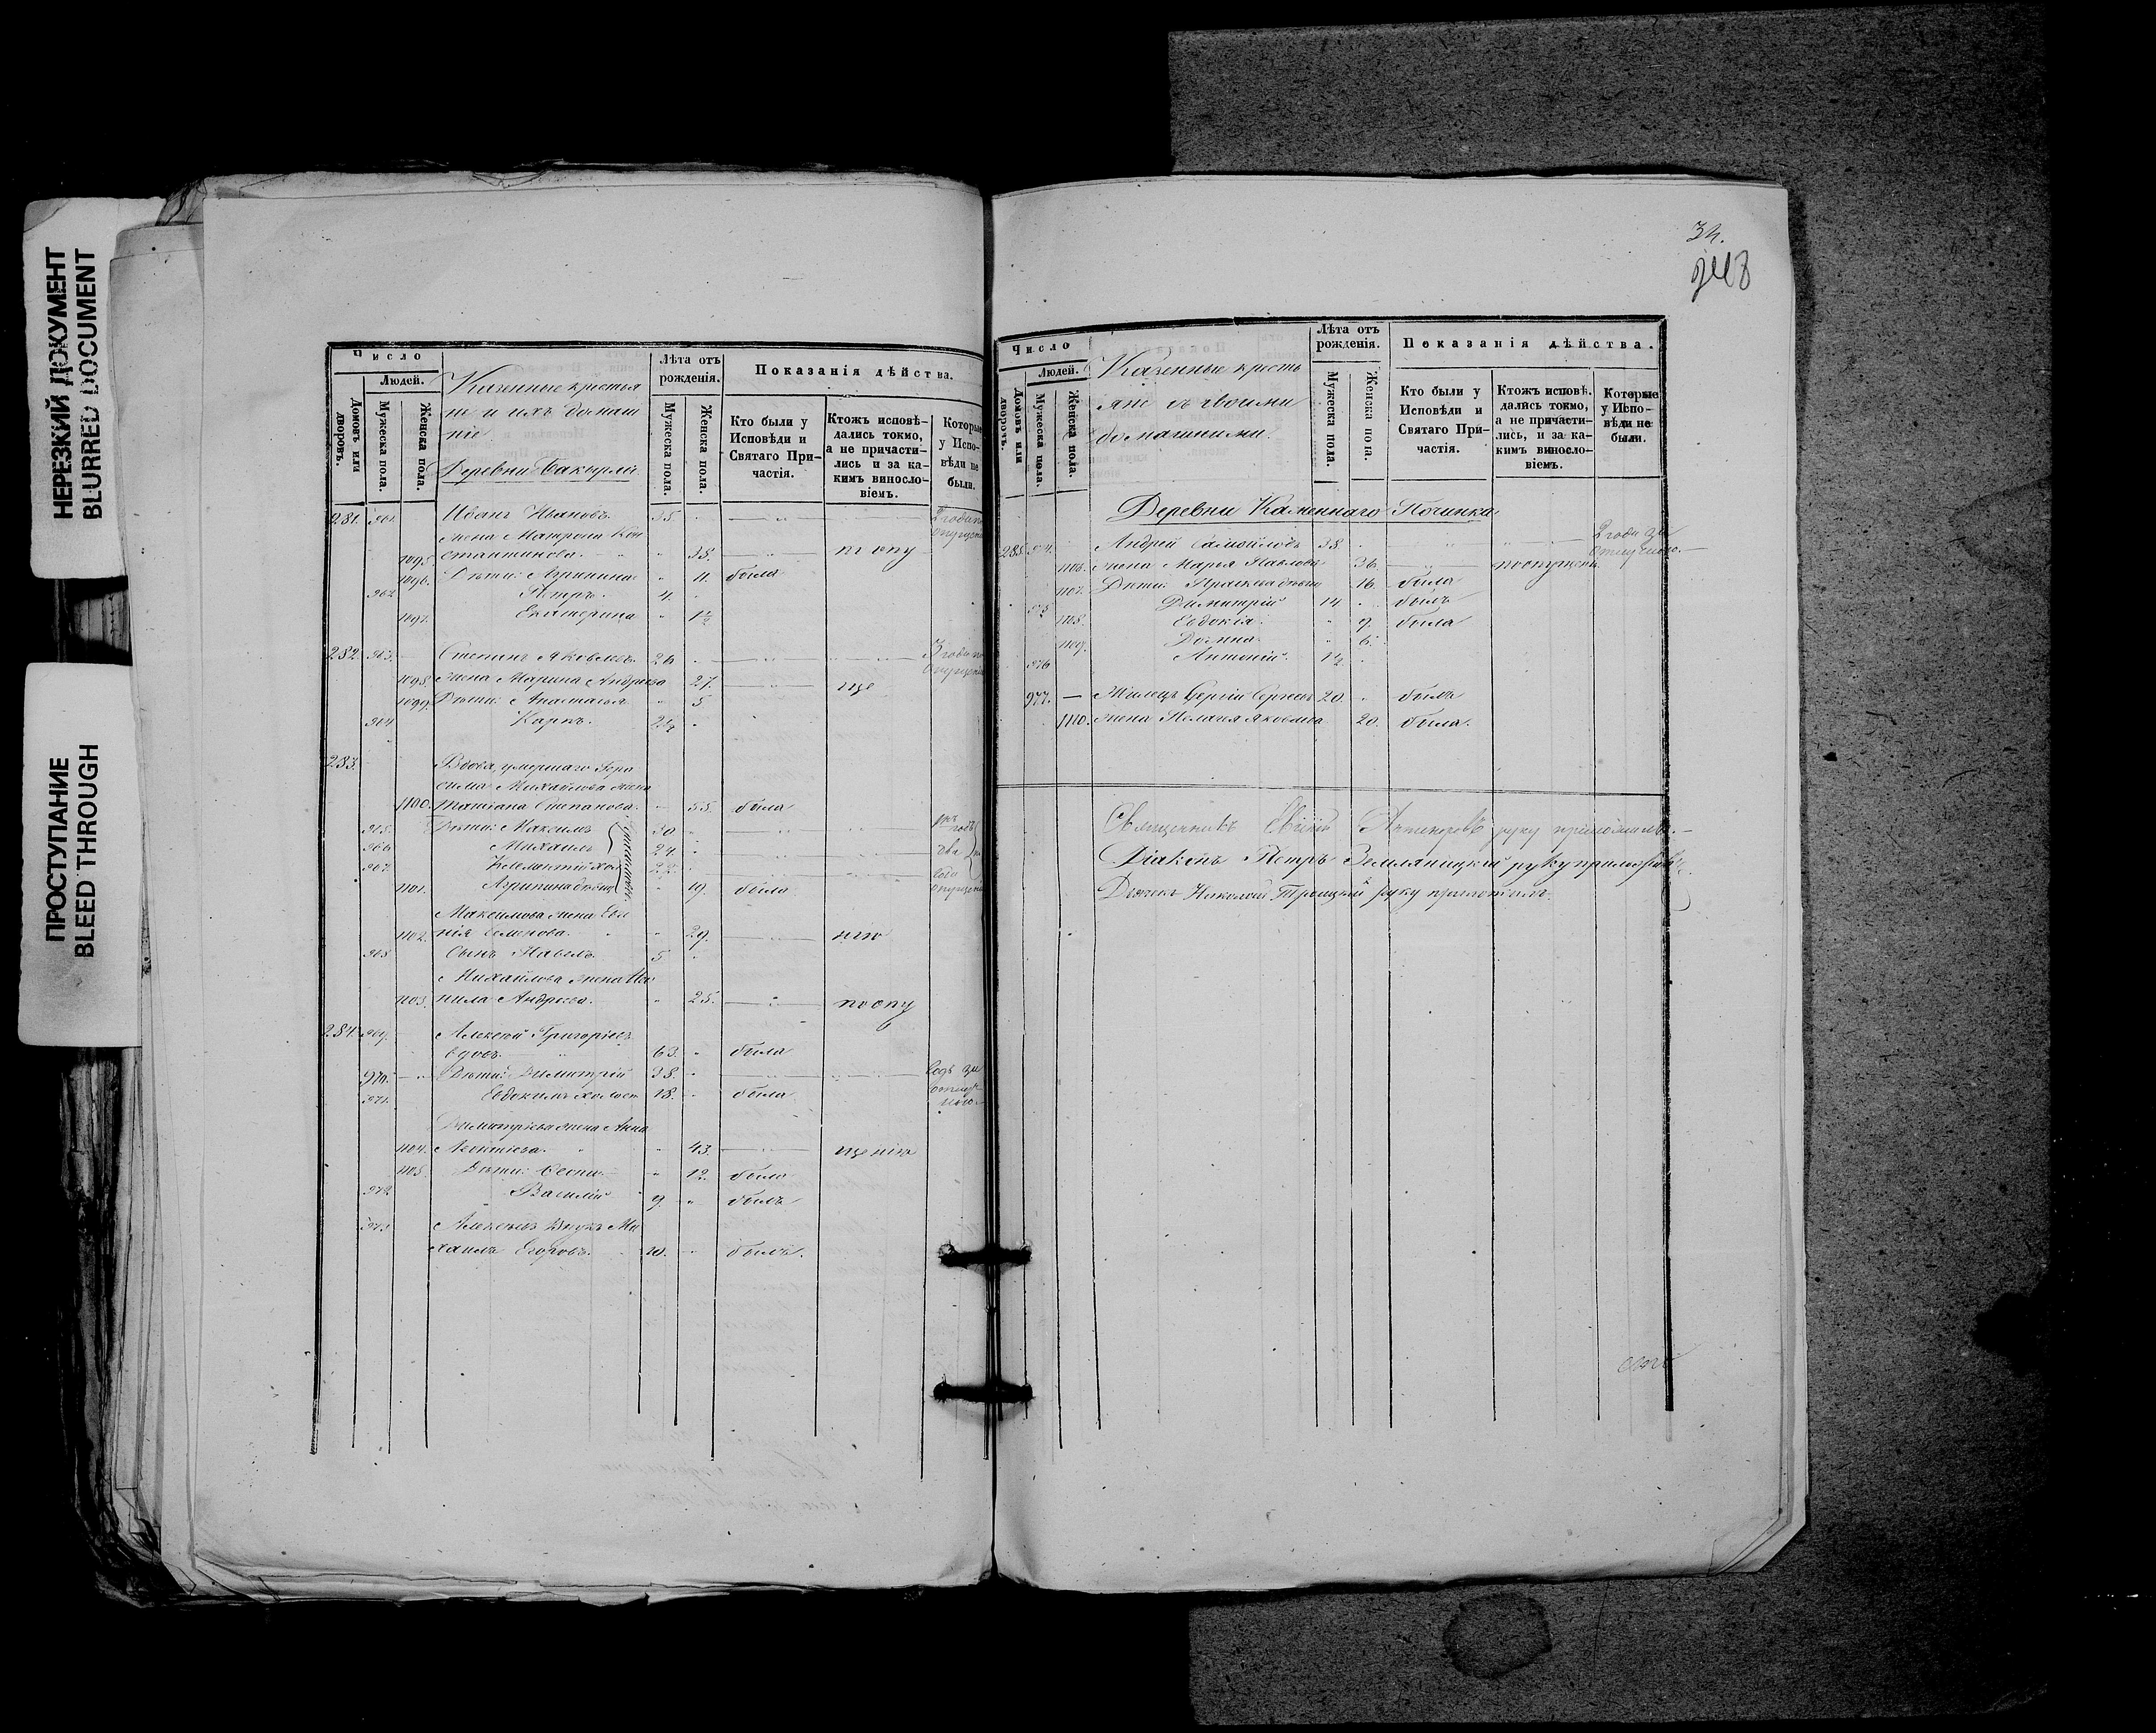 НЕРЕЗКИЙ ДОКУМЕНТ
BLURRED DOCUMENT
ПРОСТУПАНИЕ
BLEED THROUGH
Число
Людей.
Домовъ или дворовъ.
Мужеска пола.
Женска пола.
Казенные крестья
не и ихъ домаш
ніе
Деревни
Лѣта отъ рожденія.
Мужеска пола.
Женска пола.
Показанія дѣйства.
Кто были у Исповѣди и Святаго Причастія.
Ктожъ исповѣдались токмо, а не причастились и за какимъ винословіемъ.
Которые у Исповѣди не были.
281. 961. Иванъ Ивановъ 35.
жена Матрона Кон
1095. стантинова. 35. по опу
1096. Дѣти: Агрипина 11. была
962. Петръ. 4.
1097. Екатерина 1½
282. 963. Степанъ Яковлевъ 26 3 года по
опущенію
1098. жена Марина Андреева 27. ще
1099. Дѣти: Анастасья 5
964 Карпъ.
283. Вдова, умершаго Гера
сима Михайлова жена
1100. Татіана Степанова. 55. была
965. Дѣти: Максимъ 30
966 Михаилъ 24.
967. Климентій хол. 22.
1101. Агрипина дѣвица 19. была
Максимова жена Евге
1102. нія 29. нію
968 Сынъ Павелъ 5
Михайлова жена
1103. Андреева. 25. по опу
284. 969. Алексѣй Григорьевъ
вдовъ 63. была
970. Дѣти: Димитрій 38. Годъ за
971. Евдокимъ холост 18. была отлуч
ною
Димитріева жена Анна
1104. Леонтіева. 43. щенію
1105. Дѣти: 12. была
972 Василій 9. былъ
973. Алексѣя внукъ Ми
хаилъ Егоровъ. 10. былъ.
34.
248
Число
Людей.
Домовъ или дворовъ.
Мужеска пола.
Женска пола.
Казенные кресть
яне съ своими
домашними.
Лѣта отъ рожденія.
Мужеска пола.
Женска пола.
Показанія дѣйства.
Кто были у Исповѣди и Святаго Причастія.
Ктожъ исповѣдались токмо, а не причастились, и за какимъ винословіемъ.
Которые у Исповѣди не были.
Деревни Каменнаго Починка
285. 974. Андрей Самойловъ 38. 2 года за
отлучкою.
1106. жена Марья Павлова 36. по опущен.
1107. Дѣти: Прасковья дѣвица 16. была
975 Димитрій 14 былъ
1108. Евдокія 9. была
1109. Домна 6.
976 Антоній 1½
977. Жилецъ Сергій Сергеевъ 20. былъ
1110. жена Пелагія Яковлева 20. была.
Священникъ руку приложилъ.
Діаконъ Петръ Земляницкій руку приложилъ.
Дьячекъ Николай Троицкій руку приложилъ.